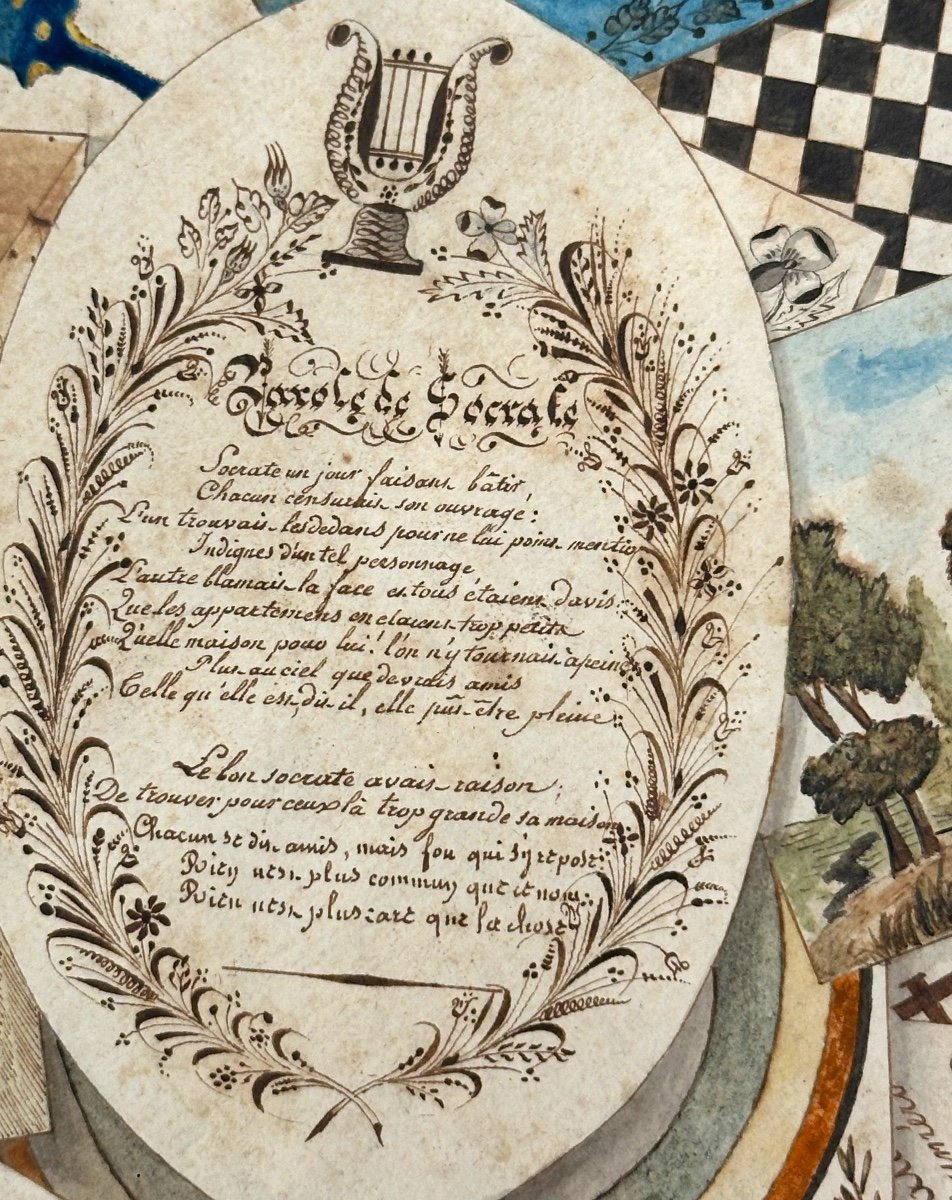 Parole de Socrate
Socrate un jour faisant bâtir,
Chacun censurait son ouvrage:
L'un trouvait les dedans pour ne lui point mentir
Indignes d'un tel personnage
L'autre blamait la face et tous étaient d'avis
Que les appartemens en etaient trop petits
Quelle maison pour lui! l'on n'y tournait à peine
Plut au ciel que de vrais amis
Telle qu'elle est, dit il, elle pût être pleine
Le bon socrate avait raison,
De trouver pour ceux là trop grande sa maison
Chacun se dit amis, mais fou qui s'y repose
Rien n'est plus commun que ce nom,
Rien n'est plus rare que la chose